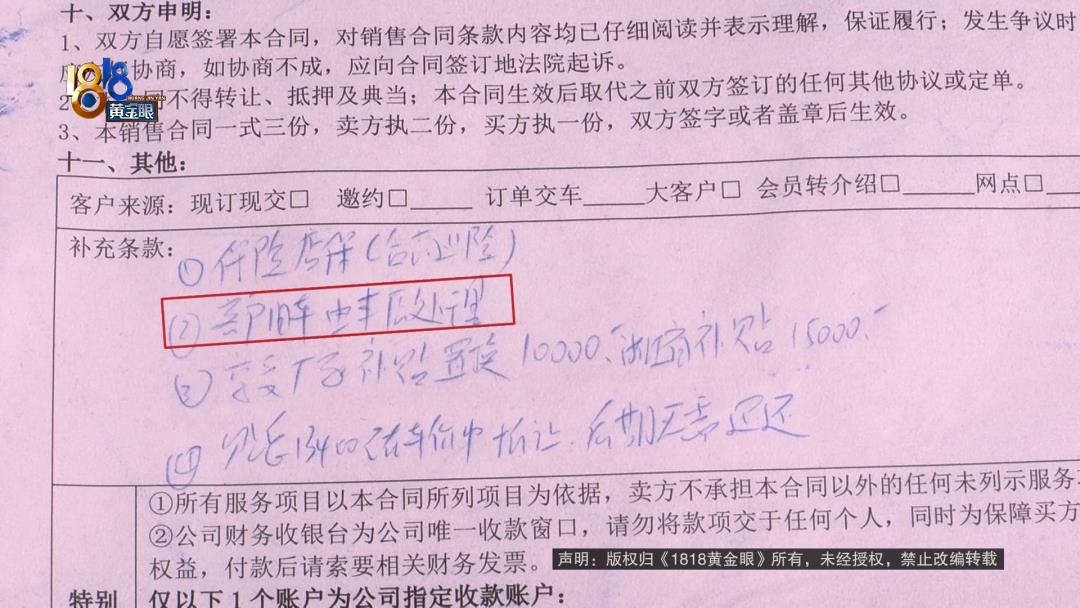 十、双方申明：
1、双方自愿签署本合同，对销售合同条款内容均已仔细阅读并表示理解，保证履行；发生争议时
应 协商，如协商不成，应向合同签订地法院起诉。
2 不得转让、抵押及典当；本合同生效后取代之前双方签订的任何其他协议或定单。
3、本销售合同一式三份，卖方执二份，买方执一份，双方签字或者盖章后生效。
1818
黄金眼
十一、其他：
客户来源：现订现交□ 邀约□____ 订单交车____大客户□ 会员转介绍□____网点□__
补充条款：
①保险店保(含商业险)
② 旧车由车厂处理
③享受厂家补贴置换10000、 补贴15000、
④ 13400在车价中折让、后期无需退还
①所有服务项目以本合同所列项目为依据，卖方不承担本合同以外的任何未列示服务
②公司财务收银台为公司唯一收款窗口，请勿将款项交于任何个人，同时为保障买方
权益，付款后请索要相关财务发票。
声明：版权归《1818黄金眼》所有，未经授权，禁止改编转载
特别
仅以下1个账户为公司指定收款账户：